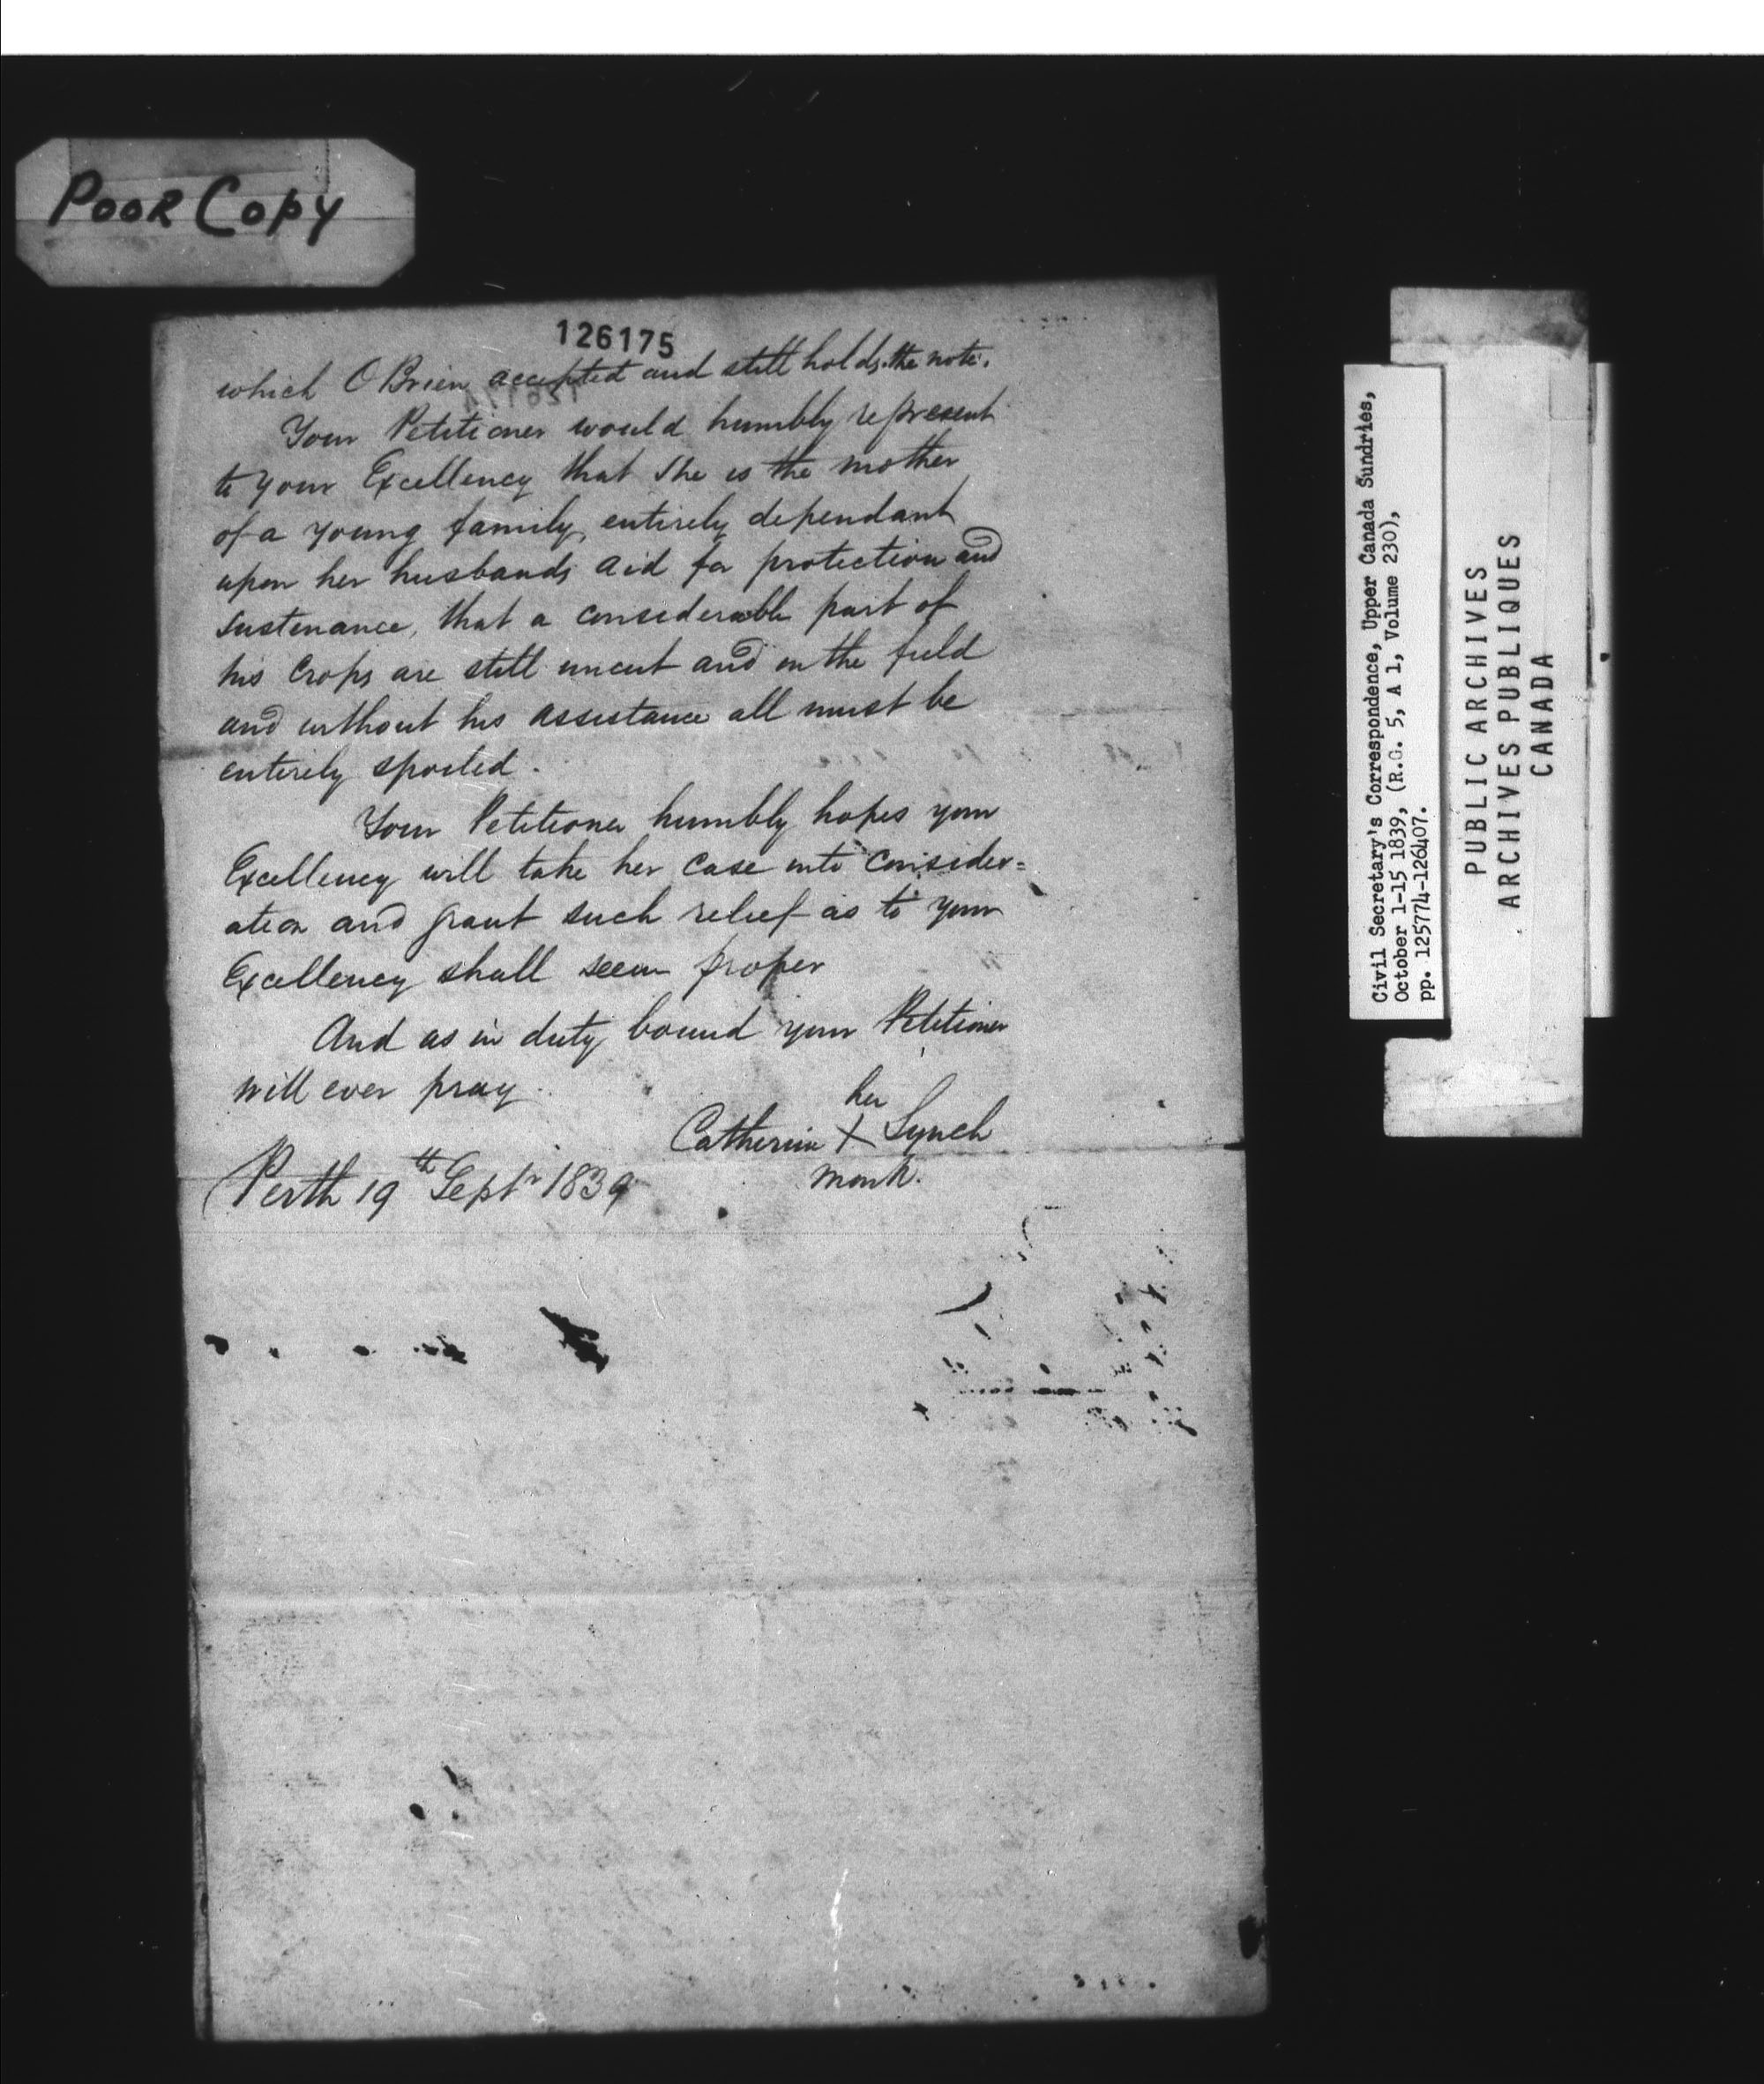 POOR COPY
126175
which O Brien accepted and still holds the note.
Your Petitioner would humbly represent
to your Excellency that she is the mother
of a young family, entirely dependant
upon her husbands aid for protection and
sustenance, that a considerable part of
his crops are still uncut and in the field
and without his assistance all must be
entirely spoiled.
Your Petitioner humbly hopes your
Excellency will take her case into consider=
ation and grant such relief as to your
Excellency shall seem proper
And as in duty bound your Petitioner
will ever pray.
her
Catherine X Lynch
mark.
Perth 19th Septr 1839
Civil Secretary's Correspondence, Upper Canada Sundries,
October 1-15 1839, (R.G. 5, A 1, Volume 230),
pp. 125774-126407.
PUBLIC ARCHIVES
ARCHIVES PUBLIQUES
CANADA